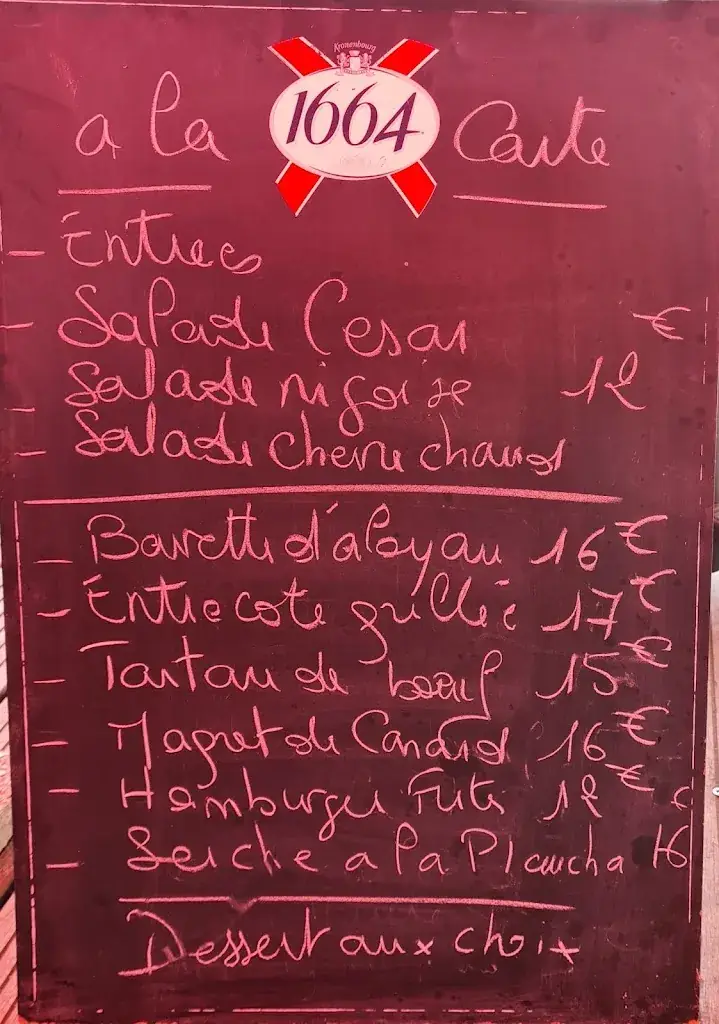 Kronenbourg
1664
a la Carte
- Entrees
- Salade Cesar €
- Salade niçoise 12
- Salade chevre chaud
- Bavette d'aloyau 16€
- Entrecote grillée 17€
- Tartare de boeuf 15€
- Magret de Canard 16€
- Hamburger Frites 12€
- Seiche a la Plancha 16
Dessert aux choix